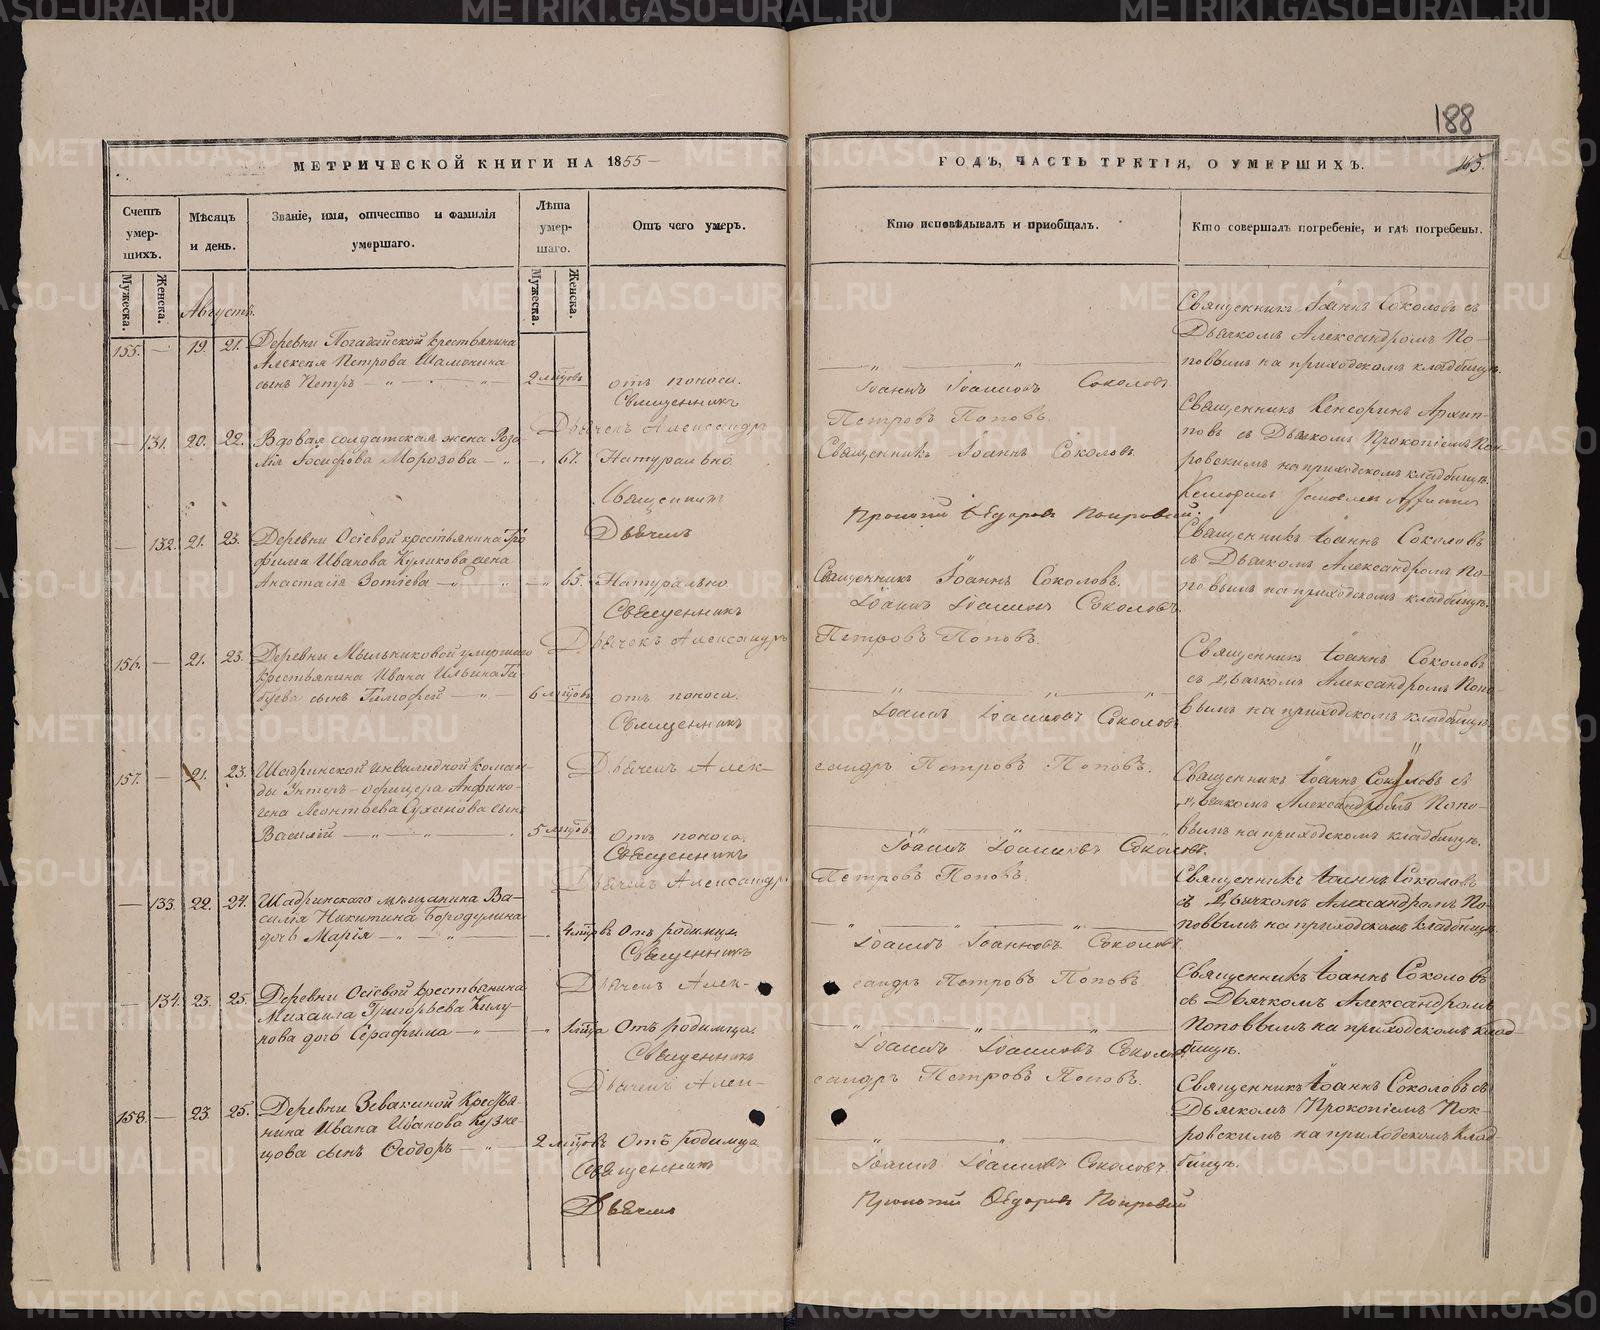 188
МЕТРИЧЕСКОЙ КНИГИ НА 1855
ГОДЪ, ЧАСТЬ ТРЕТІЯ, О УМЕРШИХЪ.
165.
Счетъ умер-шихъ.
Мѣсяцъ и день.
Званіе, имя, отчество и фамилія умершаго.
Лѣта умер-шаго.
Отъ чего умеръ.
Кто исповѣдывалъ и пріобщалъ.
Кто совершалъ погребеніе, и гдѣ погребены.
Мужеска.
Женска.
Мужеска.
Женска.
Августъ.
155. — 19. 21. Деревни крестьянина
Алексѣя Петрова
сынъ Петръ — 2 мѣсяцовъ отъ поноса.
Священникъ Іоаннъ Соколовъ съ
Дьячкомъ Александромъ По-
повымъ на приходскомъ кладбищѣ.
Священникъ Іоаннъ Іоанновъ Соколовъ
Дьячекъ Александръ Петровъ Поповъ
— 131. 20. 22. Вдовая солдатская жена Роза
лія Іосифова Морозова — 67. Натурально
Священникъ Іоаннъ Соколовъ
Священникъ Кенсоринъ Архип-
повъ съ Дьячкомъ Прокопіемъ Пок-
ровскимъ на приходскомъ кладбищѣ.
Священникъ Кенсоринъ
Дьячекъ Прокопій Ѳедоровъ Покровскій.
— 132. 21. 23. Деревни Осіевой крестьянина Тро
фима Иванова Куликова жена
Анастасія Зотіева — 65. Натурально
Священникъ Іоаннъ Соколовъ.
Священникъ Іоаннъ Соколовъ
съ Дьячкомъ Александромъ По-
повымъ на приходскомъ кладбищѣ.
Священникъ Іоаннъ Іоанновъ Соколовъ
Дьячекъ Александръ Петровъ Поповъ.
156. — 21. 23. Деревни Мыльниковой умершаго
крестьянина Ивана Ильина
сынъ Тимофей — 6 мѣсяцовъ отъ поноса.
Священникъ Іоаннъ Соколовъ
съ Дьячкомъ Александромъ Попо-
вымъ на приходскомъ кладбищѣ.
Священникъ Іоаннъ Іоанновъ Соколовъ
Дьячекъ Алек-сандръ Петровъ Поповъ.
157. — 21. 23. Шадринской инвалидной коман-
ды Унтеръ-офицера Анфино-
гена Леонтьева Суханова сынъ
Василій — 5 мѣсяцовъ Отъ поноса.
Священникъ Іоаннъ Соколовъ съ
Дьячкомъ Александромъ Попо-
вымъ на приходскомъ кладбищѣ.
Священникъ Іоаннъ Іоанновъ Соколовъ.
Дьячекъ Александръ Петровъ Поповъ.
— 133. 22. 24. Шадринскаго мѣщанина Ва-
силія Никитина Бородулина
дочь Марія — Отъ родимца.
Священникъ Іоаннъ Соколовъ
съ Дьячкомъ Александромъ По-
повымъ на приходскомъ кладбищѣ.
Священникъ Іоаннъ Іоанновъ Соколовъ.
Дьячекъ Алек-сандръ Петровъ Поповъ.
— 134. 23. 25. Деревни Осіевой крестьянина
Михаила Григорьева Килу
нова дочь Серафима — Отъ родимца.
Священникъ Іоаннъ Соколовъ
съ Дьячкомъ Александромъ
Поповымъ на приходскомъ клад
бищѣ.
Священникъ Іоаннъ Іоанновъ Соколовъ.
Дьячекъ Алек-сандръ Петровъ Поповъ.
158. — 23. 25. Деревни Зевакиной Крестья-
нина Ивана Иванова Кузне-
цова сынъ Ѳеодоръ — 2 мѣсяцовъ Отъ родимца
Священникъ Іоаннъ Соколовъ съ
Дьячкомъ Прокопіемъ Пок-
ровскимъ на приходскомъ клад-
бищѣ.
Священникъ Іоаннъ Іоанновъ Соколовъ.
Дьячекъ Прокопій Ѳедоровъ Покровскій
METRIKI.GASO-URAL.RU